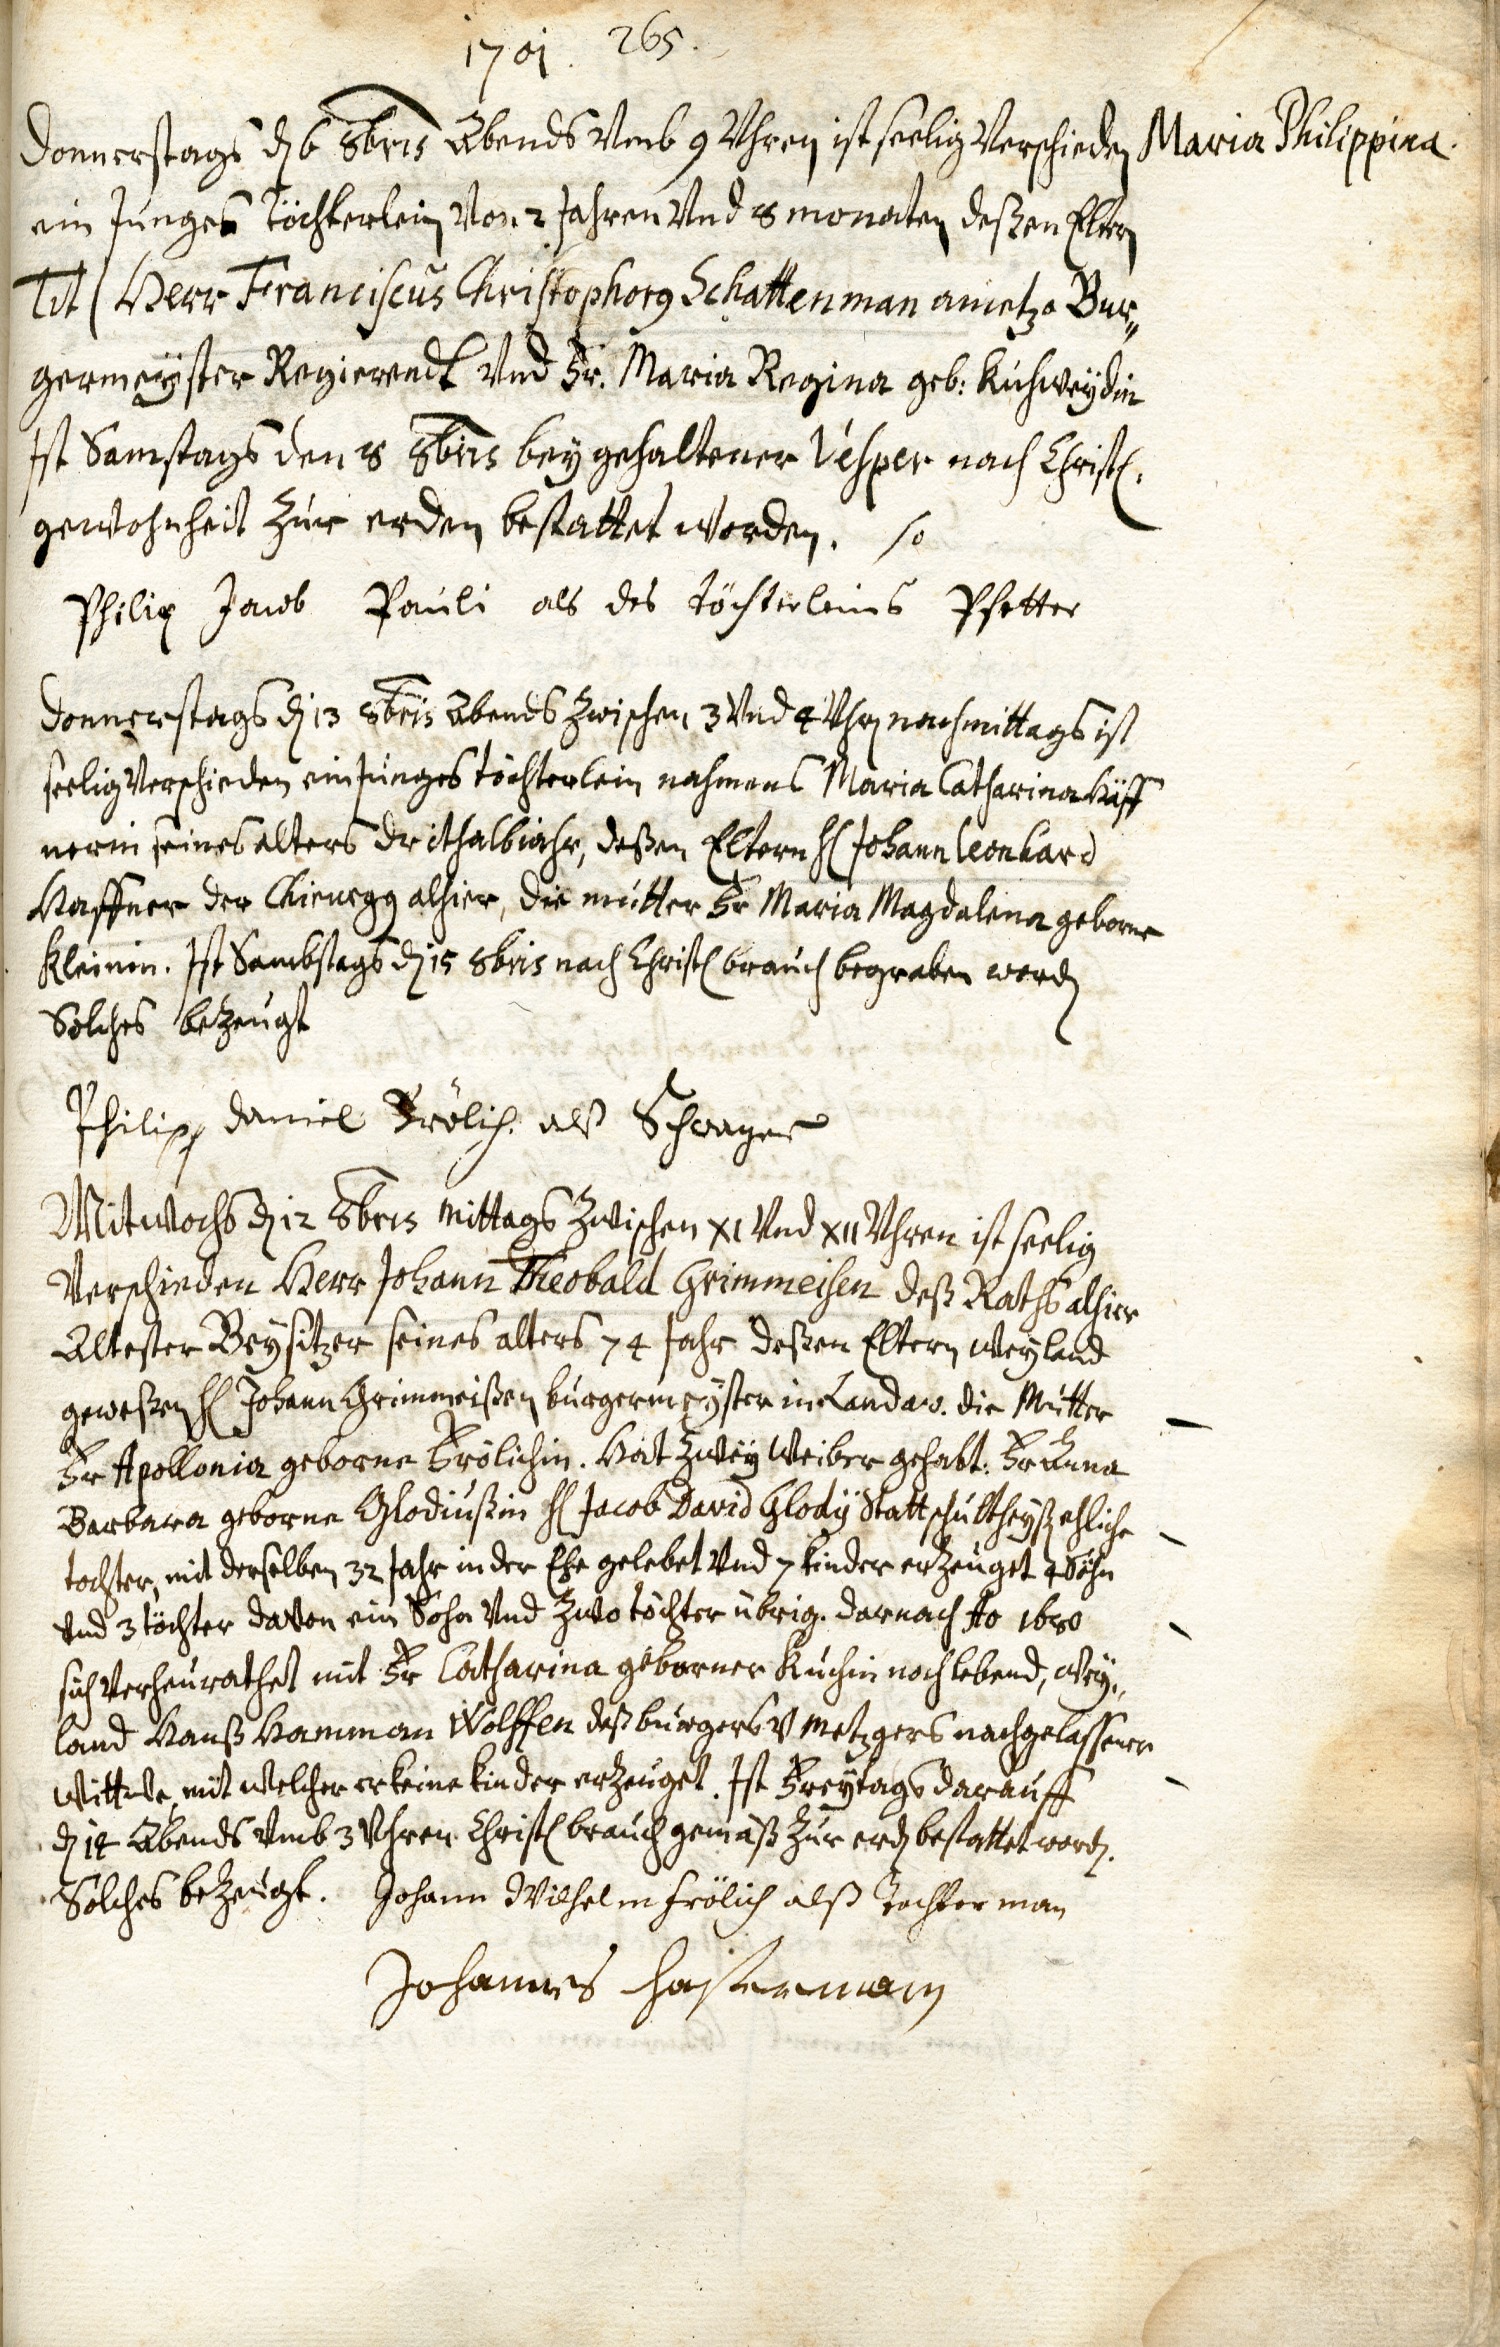 1701. 265.
Donnerstags dn 6 8bris Abends Vmb 9 Vhren ist seelig Verschieden Maria Philippina.
ein Junges Töchterlein Von 2 Jahren Vnd 8 monaten deßen Eltern
Tit Herr Franciscus Christophorg Schattenman Bur„
germeyster Regierendt Vnd Fr. Maria Regina geb: Kuhweydin
Ist Samstags den 8 8bris bey gehaltener Vesper nach Christl.
gewohnheit Zur erden bestattet worden. so
Philip Jacob Pauli als des töchterleins Pfetter
Donnerstags dn 13 8bris Abends Zwischen 3 Vnd 4 Vhrn nachmittags ist
seelig Verschieden ein Junges töchterlein nahmens Maria Catharina Häff
nerin seines alters drithalb iahr, deßen Eltern H Johann Leonhard
Haffner der Chirurgg alhier, die mutter Fr Maria Magdalena geborne
Kleinin. Ist Sambstags dn 15 8bris nach Christl brauch begraben wordn
Solches beZeugt
Philipp Daniel Frölich. alß Schwager
Mitwochs dn 12 8bris Mittags Zwischen XI Vnd XII Vhren ist seelig
Verschieden Herr Johann Theobald Grimmeisen deß Raths alhier
Altester Beysitzer seines alters 74 Jahr deßen Eltern weyland
geweßen H Johann Grimmeißen burgermeyster in Landaw. die Mutter
Fr Apollonia geborne Frölichin. Hat Zwey Weiber gehabt: Fr Anna
Barbara geborne Glodiußin H Jacob David Glody Stattschultheyß ehliche
tochter, mit derselben 32 Jahr in der Ehe gelebet Vnd 7 Kinder erZeuget 4 Söhn
Vnd 3 töchter davon ein Sohn Vnd Zwo töchter übrig. darnach Ao 1680
sich Verheurathet mit Fr Catharina geborner Kuchin noch lebend, Wey„
land Hanß Hamman Wolffen deß burgers V Metzgers nachgelassener
Wittwe, mit welcher er keine Kinder erZeuget. Ist Freytags darauff
dn 14 Abends Vmb 3 Vhren Christl brauch gemäß Zur erdn bestattet wordn.
Solches beZeugt. Johann Wilhelm Frölich alß Tochterman
Johannes